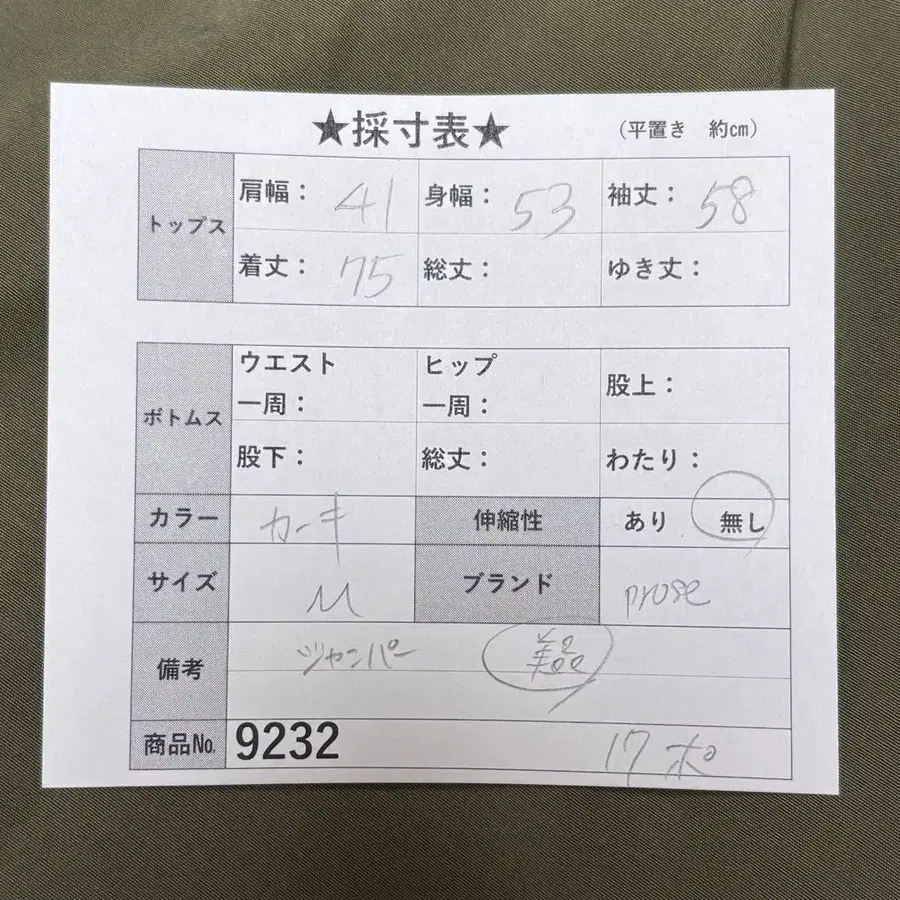 ★採寸表★ (平置き 約㎝)
トップス 肩幅: 41 身幅: 53 袖丈: 58
着丈: 75 総丈: ゆき丈:
ボトムス ウエスト一周: ヒップ一周: 股上:
股下: 総丈: わたり:
カラー カーキ 伸縮性 あり 無し
サイズ M ブランド prose
備考 ジャンパー 美品
商品№ 9232 17ポ